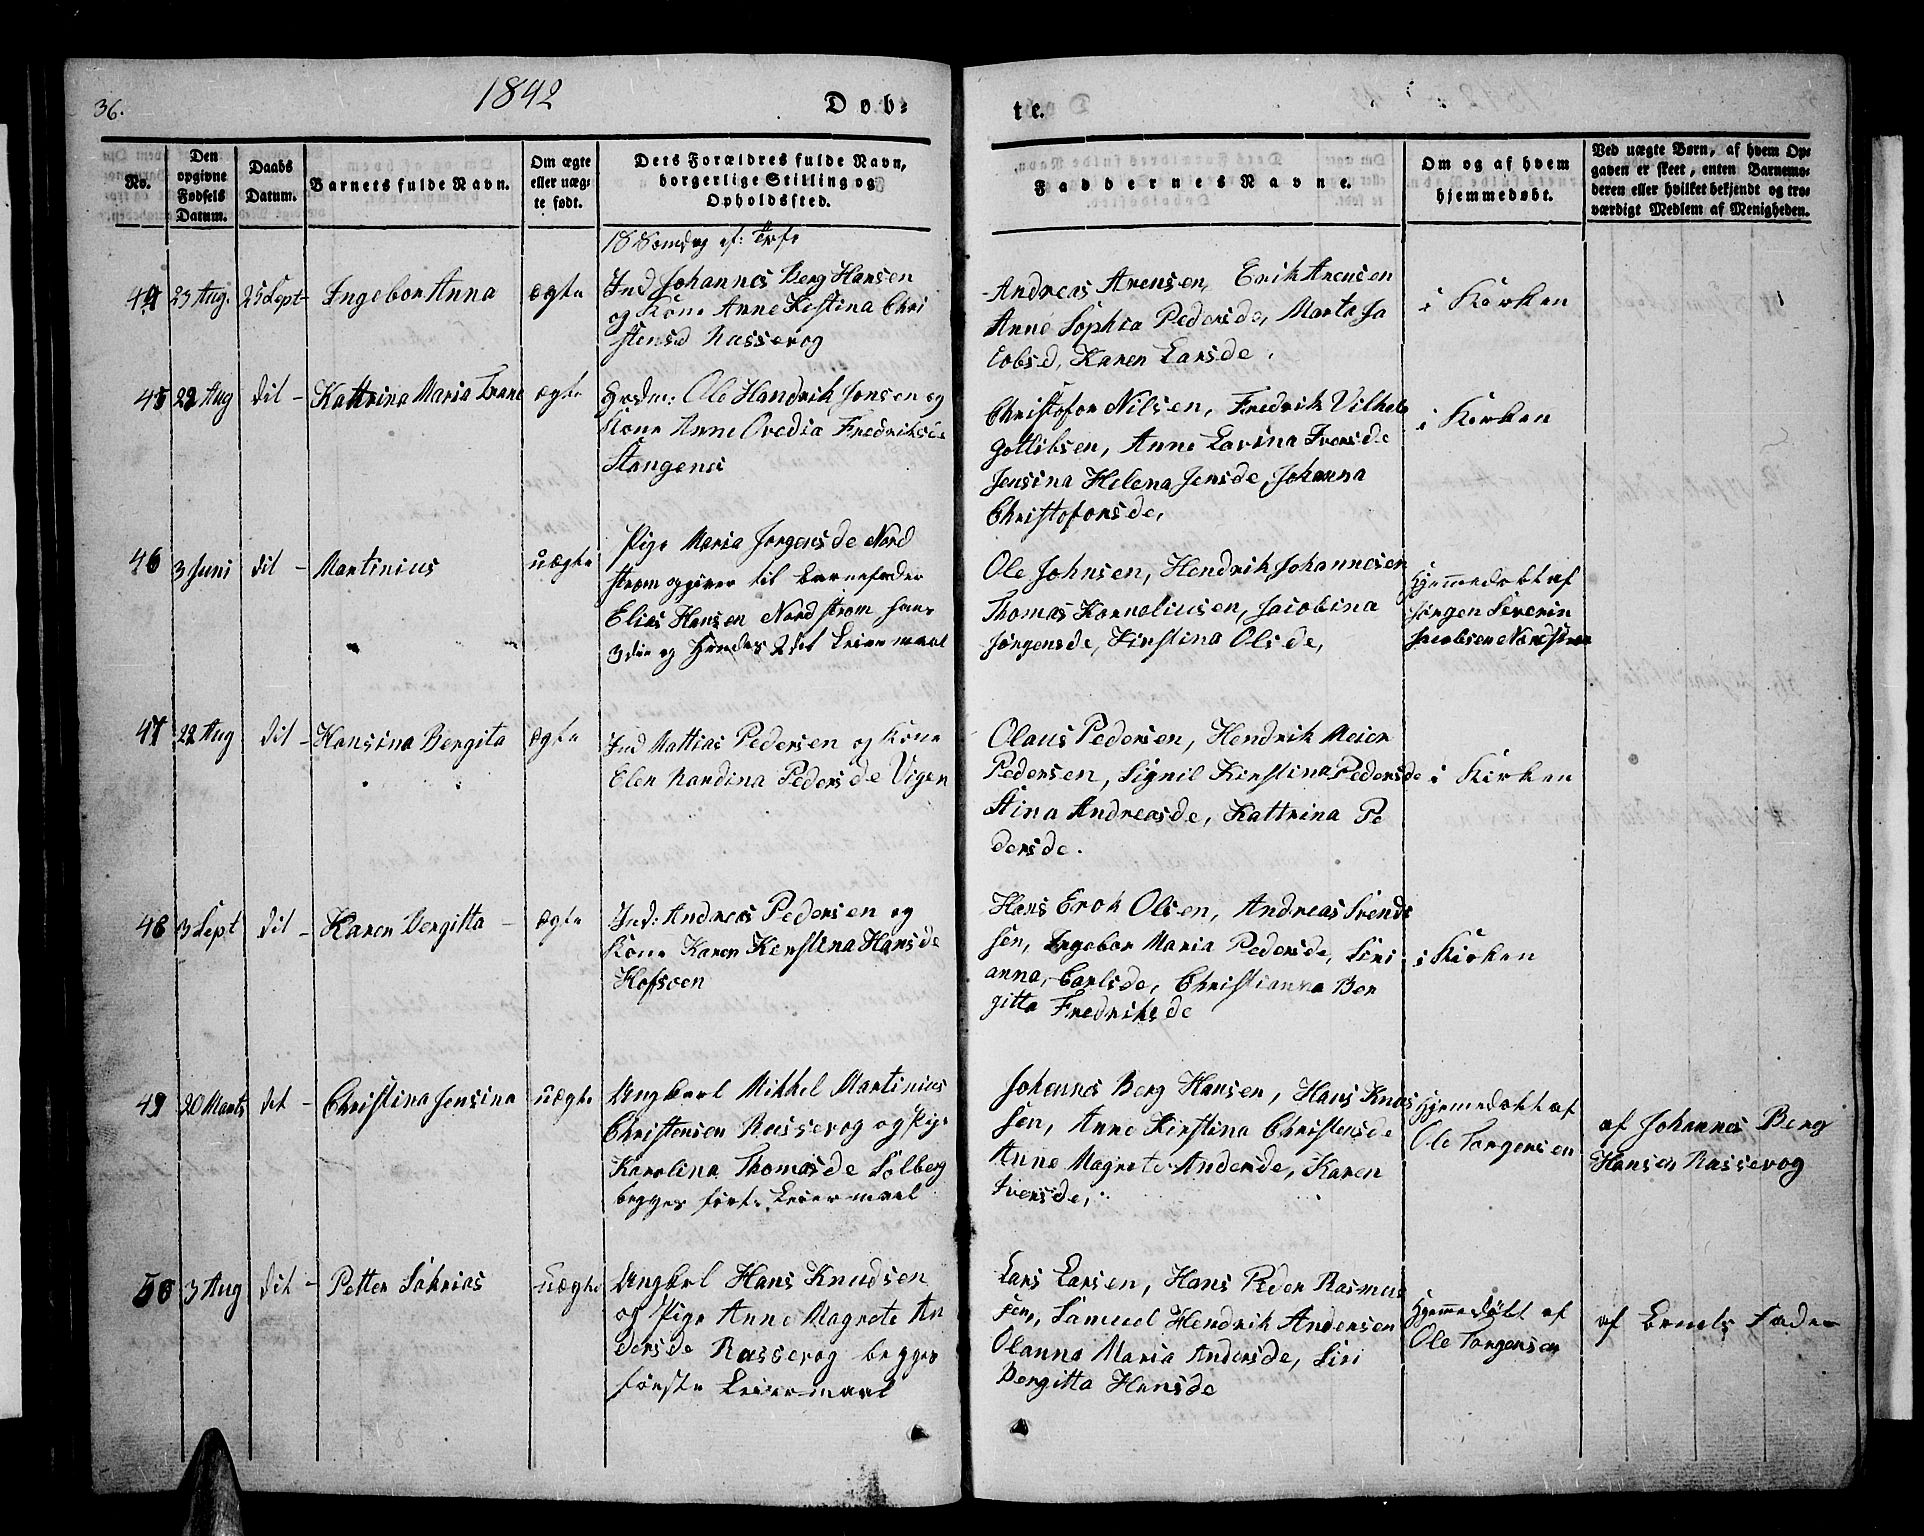 36.
1842
Dob=
te.
No.
Den
opgivne
Fødsels
Datum.
Daabs
Datum.
Barnets fulde Navn.
Om ægte
eller uæg-
te født.
Dets Forældres fulde Navn,
borgerlige Stilling og
Opholdssted.
Faddernes Navne.
Om og af hvem
hjemmedøbt.
Ved uægte Børn, af hvem Op-
gaven er skeet, enten Barnemo-
deren eller hvilket bekjendt og tro-
værdigt Medlem af Menigheden.
18 Søndag ef: Trf.
44 23 Aug. 25 Sept- Ingebor Anna ægte
Ind Johannes Berg Hansen
og Kone Anne Kirstina Chri
stensd Rassevog
Andreas Arensen, Erik Arensen
Anne Sophia Pedersde, Marta Ja
cobsd, Karen Larsde.
i Kirken
45 22 Aug dit - Kattrina Maria Trane ægte
Hrdm: Ole Handrik Jensen og
Kone Anne Ovedia Fredriksd
Stangenes
Christofor Nilsen, Fredrik Vilhel
Gottlibsen, Anne Lavina Iversde
Jensina Helena Jensde, Johanna
Christoforsde,
i Kirken
46 3 Juni dit - Martinius uægte
Pige Maria Jørgensde Nord
strøm opgiver til Barnefader
Elias Hansen Nordstrøm hans
3die og Hendes 2det Leiermaal
Ole Johnsen, Hendrik Johannesen
Thomas Korneliusen, Jacobina
Jørgensde, Kirstina Olsde,
Hjemmedøbt af
Jørgen Severin
Jacobsen Nordstrøm
47 22 Aug dit - Hansina Bergita ægte
Ind Mattias Pedersen og Kone
Elen Nardina Pedersde Vigen
Olaus Pedersen, Hendrik Meier
Pedersen, Signil Kirstina Pedersde
Stina Andreasde, Kattrina Pe
dersde.
i Kirken
48 3 Sept dit - Karen Bergitta - ægte
Ind: Andreas Pedersen og
Kone Karen Kirstina Hansde
Hofsøen
Hans Erok Olsen, Andreas Svends
sen, Ingebor Maria Pedersde, Siri
anna, Carlsde, Christianna Ber
gitta Fredriksde
i Kirken
49 20 Marts dit - Christina Jensina uægte
Ungkarl Mikkel Martinius
Christensen Rassevog og Pige
Karolina Thomasde Solberg
begges første Leiermaal
Johannes Berg Hansen, Hans Knus
sen, Anne Kirstina Christensde
Anne Magrete Andersde, Karen
Iversde,
Hjemmedøbt af
Ole Torgersen
af Johannes Berg
Hansen Rassevog
50 3 Aug dit - Petter Sakrias uægte
Ungkarl Hans Knudsen
og Pige Anne Magrete An
dersde Rassevog begges
første Leiermaal
Lars Larsen, Hans Peder Rasmus
sen, Samuel Hendrik Andersen
Olanna Maria Andersde, Siri
Bergitta Hansde
Hjemmedøbt af
Ole Torgersen
af Barnets Fader